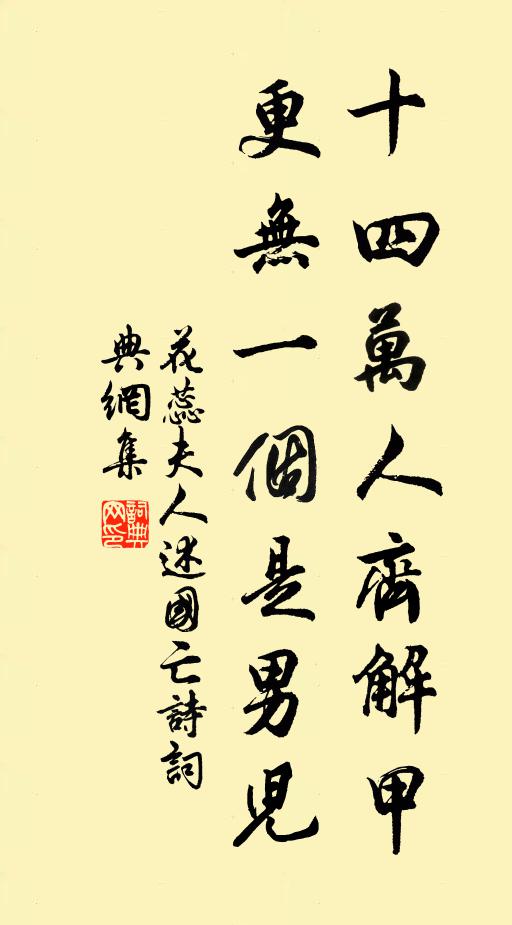 十四萬人齊解甲
更無一個是男兒
花蕊夫人述國亡詩詞
典網集
詞典
网印